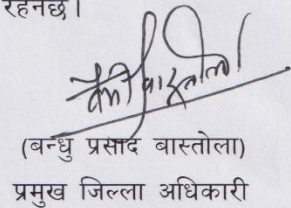 रहनेछ।
(बन्धु प्रसाद बास्तोला)
प्रमुख जिल्ला अधिकारी